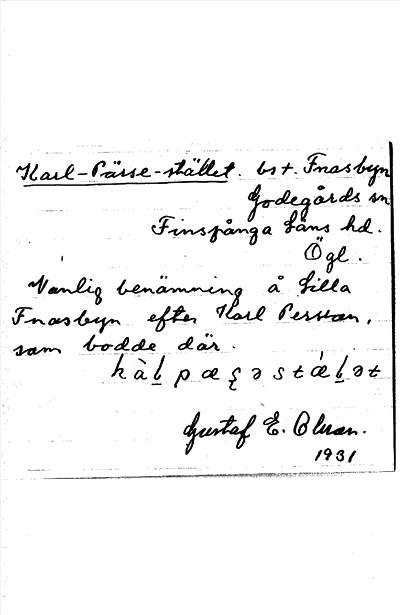 Karl-Pärse-stället. bst. Fnasbyn
Godegårds sn
Finspånga läns hd.
Ögl.
Vanlig benämning å Lilla
Fnasbyn efter Karl Persson,
som bodde där.
Gustaf E. Olsson.
1931